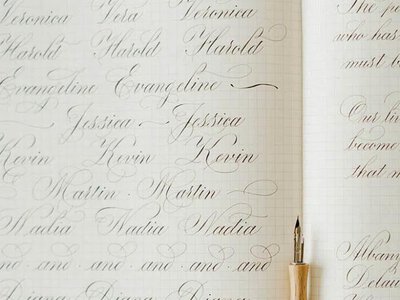 Veronica Vera Veronica
Harold Harold Harold
Evangeline Evangeline
Jessica Jessica
Kevin Kevin Kevin
Martin Martin
Nadia Nadia Nadia
and and and and and and
Diana Diana Diana
The pe
who has
must b
Our li
become
that m
Albany
Delaw